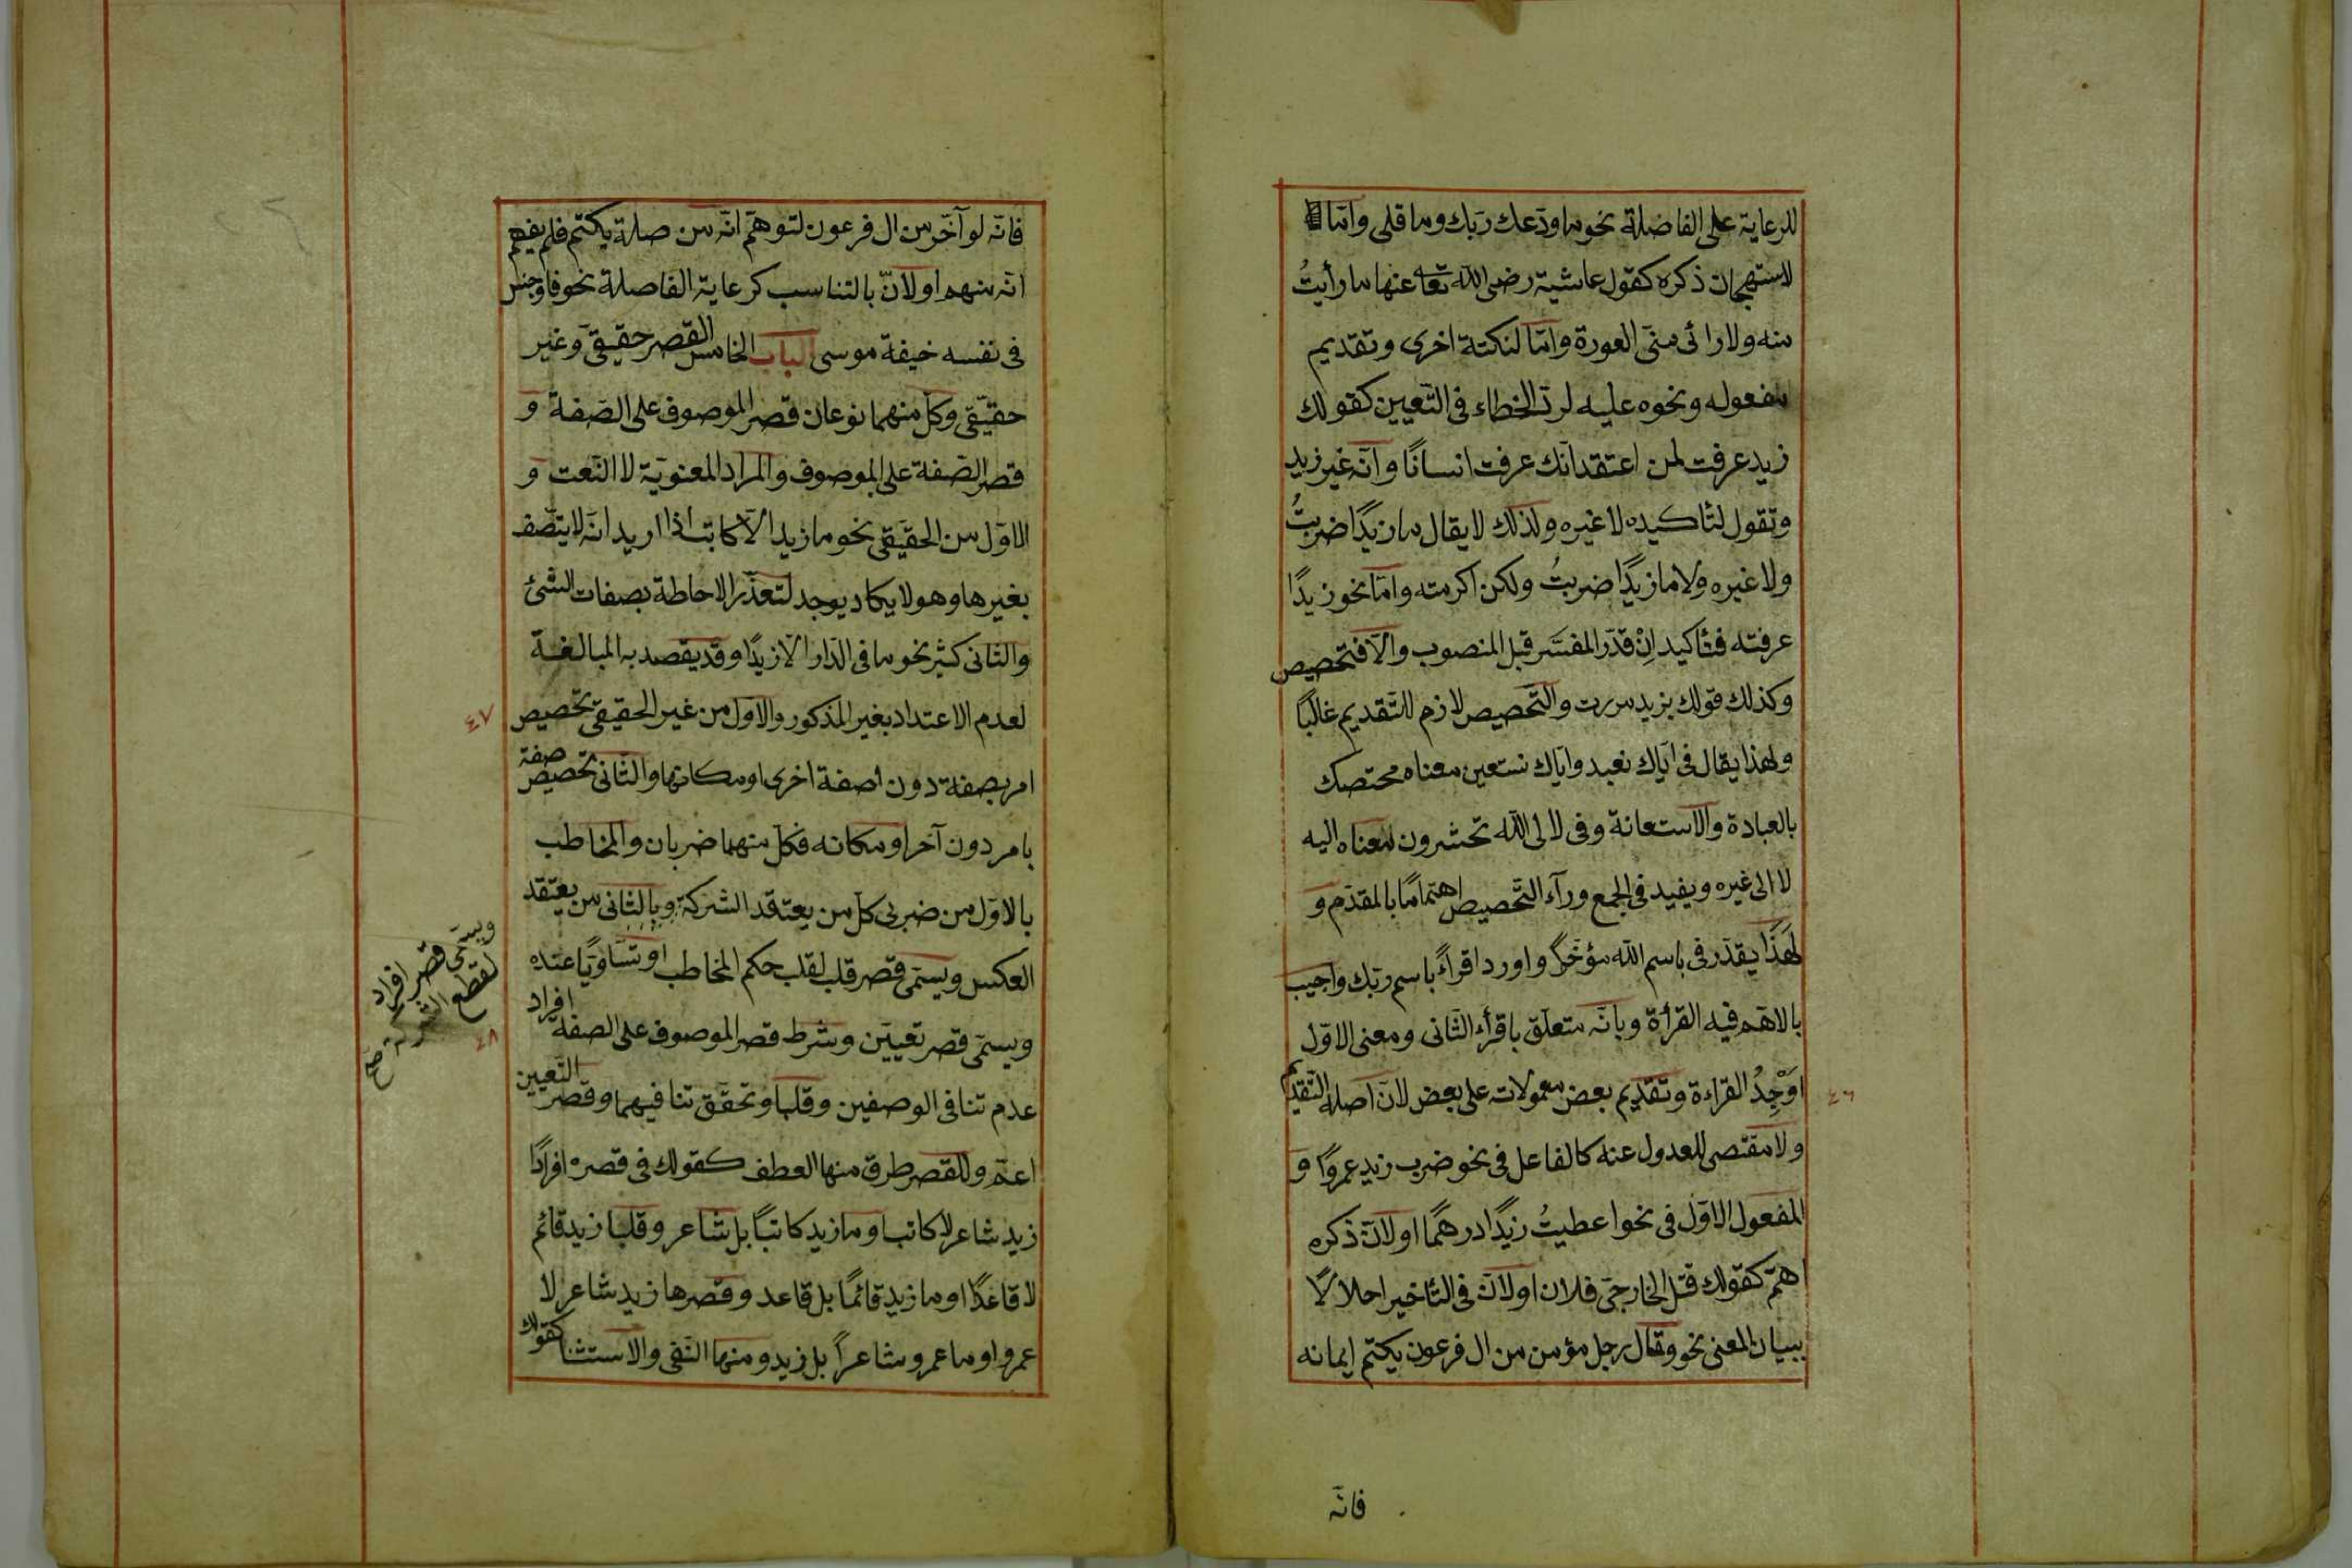 للرعاية على الفاضلة نحو ما ودعك ربك وما قلى وامّا
لاستهجان ذكره كقول عاشية رضى الله تعا عنها ما رأيتُ
منه ولا رائ منّى العورة وامّا لنكتة اخرى وتقديم
مفعوله ونحوه عليه لردّ الخطاء فى التّعيين كقولك
زيد عرفت لمن اعتقد انّك عرفت انسانًا وانّه غير زيد
وتقول لتأكيده لا غيره ولذلك لا يقال ما زيدًا ضربتُ
ولا غيره ولا ما زيدًا ضربتُ ولكن اكرمته وامّا نحو زيدًا
عرفته فتأكيد اِنْ قدّر المفسَّر قبل المنصوب والّا فتخصيص
وكذلك قولك بزيد مررت والتّخصيص لازم للتّقديم غالبًا
ولهذا يقال فى ايّاك نعبد وايّاك نستعين معناه مختصك
بالعبادة والاستعانة وفى لا لى الله تحشرون معناه اليه
لا الى غيره ويفيد فى الجمع ورآء التّخصيص اهتمامًا بالمقدّم و
لهذا يقدّر فى باسم الله مؤخّرًا واورد اقرأ باسم ربّك واجيب
بالاهمّ فيه القرأة وبانّه متعلّق باقرأ الثّانى ومعنى الاوّل
اَوْجِدُ القراءة وتقديم بعض معمولاته على بعض لانّ اصله التّقديم
ولا مقتضى للعدول عنه كالفاعل فى نحو ضرب زيد عمروًا و
المفعول الاوّل فى نحو اعطيتُ زيدًا درهمًا او لانّ ذكره
اهمّ كقولك قتل الخارجىّ فلان او لانّ فى التأخير احلالًا
ببيان المعنى نحو وقال رجل مؤمن من ال فرعون يكتم ايمانه
٤٦
فانّه
فانّه لو آخّر من ال فرعون لتوهّم انّه من صلة يكتم فلم يفهم
انّه منهم او لانّ بالتناسب كرعاية الفاصلة نحو فاوجس
فى نفسه خيفة موسى الباب الخامس القصر حقيقىّ وغير
حقيقّى وكلّ منهما نوعان قصر الموصوف على الصّفة و
قصر الصّفة على الموصوف والمراد المعنويّة لا النّعت و
الاوّل من الحقيقّى نحو ما زيد الّا كاتب اذا اريد انّه لا يتّصف
بغيرها وهو لا يكاد يوجد لتعذّر الاحاطة بصفات الشئ
والثّانى كثير نحو ما فى الدّار الّا زيدًا وقد يقصد به المبالغة
لعدم الاعتداد بغير المذكور والاوّل من غير الحقيقى تخصيص
٤٧
امر بصفة دون اصفة اخرى او مكانها والثّانى تخصيص صفة
بامر دون آخر او مكانه فكلّ منهما ضربان والمخاطب
بالاوّل من ضربى كلّ من يعتقد الشركة وبالثّانى من يعتقد
ويسمّى قصر افراد
لقطع الشركة صح
العكس ويسمّى قصر قلب لقلب حكم المخاطب او تساويًا عنده
ويسمّى قصر تعيين وشرط قصر الموصوف على الصفة افراد
٤٨
عدم تنافى الوصفين وقلبا وتحقّق تنافيهما وقصر التّعيين
اعمّ وللقصر طرق منها العطف كقولك فى قصره افرادًا
زيد شاعر لا كاتب او ما زيد كاتبًا بل شاعر وقلبا زيد قائم
لا قاعدًا او ما زيد قائمًا بل قاعد وقصرها زيد شاعر لا
عمرو او ما عمرو شاعرًا بل زيد ومنها النّفى والاستثنا كقولك